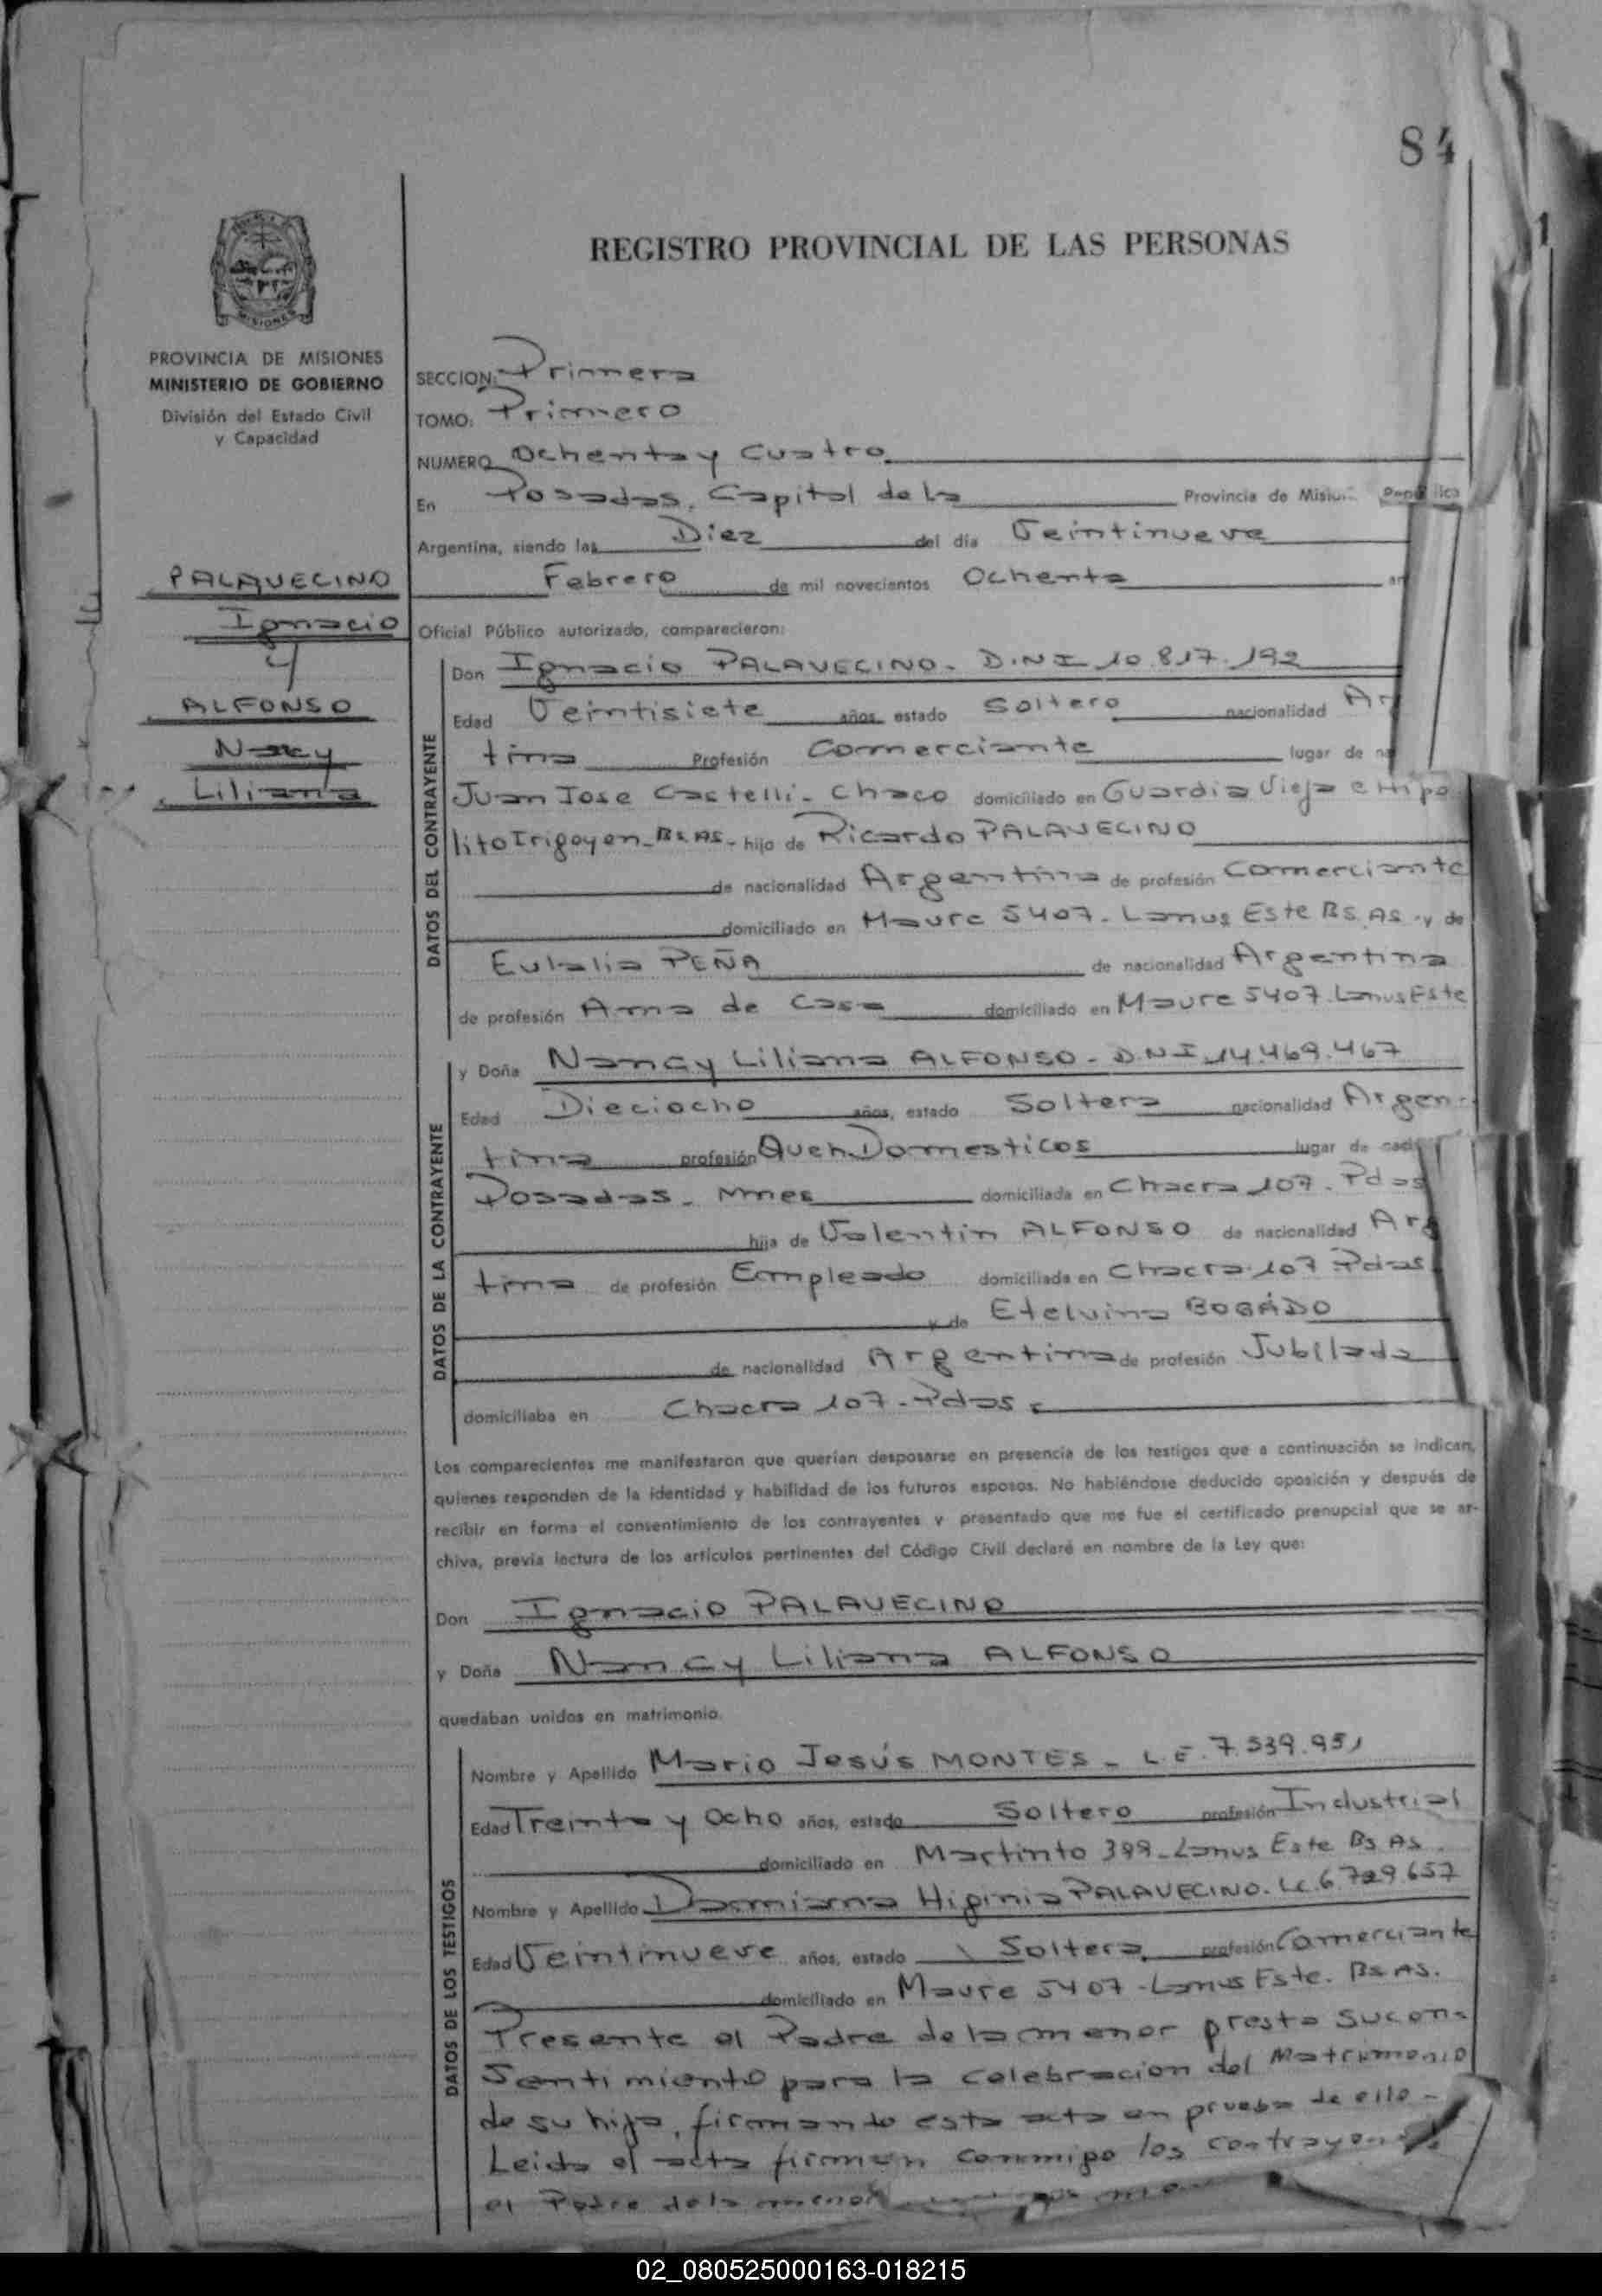 84
REGISTRO PROVINCIAL DE LAS PERSONAS
MISIONES
PROVINCIA DE MISIONES
MINISTERIO DE GOBIERNO
División del Estado Civil
y Capacidad
PALAVECINO
Ignacio
y
ALFONSO
Nancy
Liliana
SECCION: Primera
TOMO: Primero
NUMERO Ochenta y Cuatro
En Posadas, Capital de la Provincia de
Argentina, siendo las Diez del día Veintinueve
Febrero de mil novecientos Ochenta
Oficial Público autorizado, comparecieron:
DATOS DEL CONTRAYENTE
Don Ignacio PALAVECINO - D.N.I 10.817.192
Edad Veintisiete años, estado Soltero nacionalidad Ar
tina Profesión Comerciante lugar de na
Juan Jose Castelli - Chaco domiciliado en Guardia Vieja e Hipo
lito Irigoyen - Bs.As - hijo de Ricardo PALAVECINO
de nacionalidad Argentina de profesión Comerciante
domiciliado en Maure 5407 - Lanus Este Bs. As - y de
Eulalia PEÑA de nacionalidad Argentina
de profesión Ama de Casa domiciliado en Maure 5407. Lanus Este
DATOS DE LA CONTRAYENTE
y Doña Nancy Liliana ALFONSO - D.N.I 14.469.467
Edad Dieciocho años, estado Soltera nacionalidad Argen-
tina profesión Queh. Domesticos lugar de naci
Posadas - Mnes domiciliada en Chacra 107 - Pdas
hija de Valentin ALFONSO de nacionalidad Arg
tina de profesión Empleado domiciliada en Chacra 107 Pdas
y de Etelvina BOGADO
de nacionalidad Argentina de profesión Jubilada
domiciliaba en Chacra 107 - Pdas
Los comparecientes me manifestaron que querían desposarse en presencia de los testigos que a continuación se indican,
quienes responden de la identidad y habilidad de los futuros esposos. No habiéndose deducido oposición y después de
recibir en forma el consentimiento de los contrayentes y presentado que me fue el certificado prenupcial que se ar-
chiva, previa lectura de los artículos pertinentes del Código Civil declaré en nombre de la Ley que:
Don Ignacio PALAVECINO
y Doña Nancy Liliana ALFONSO
quedaban unidos en matrimonio.
DATOS DE LOS TESTIGOS
Nombre y Apellido Mario Jesús MONTES - L.E. 7.539.951
Edad Treinta y Ocho años, estado Soltero profesión Industrial
domiciliado en Martinto 399 - Lanus Este Bs As.
Nombre y Apellido Damiana Higinia PALAVECINO. Lc. 6.729.657
Edad Veintinueve años, estado Soltera profesión Comerciante
domiciliado en Maure 5407 - Lanus Este. Bs. As.
Presente el Padre de la menor presta su con-
sentimiento para la celebracion del Matrimonio
de su hija, firmando esta acta en prueba de ello -
Leida el acta firman conmigo los
el Padre de la menor
02_080525000163-018215